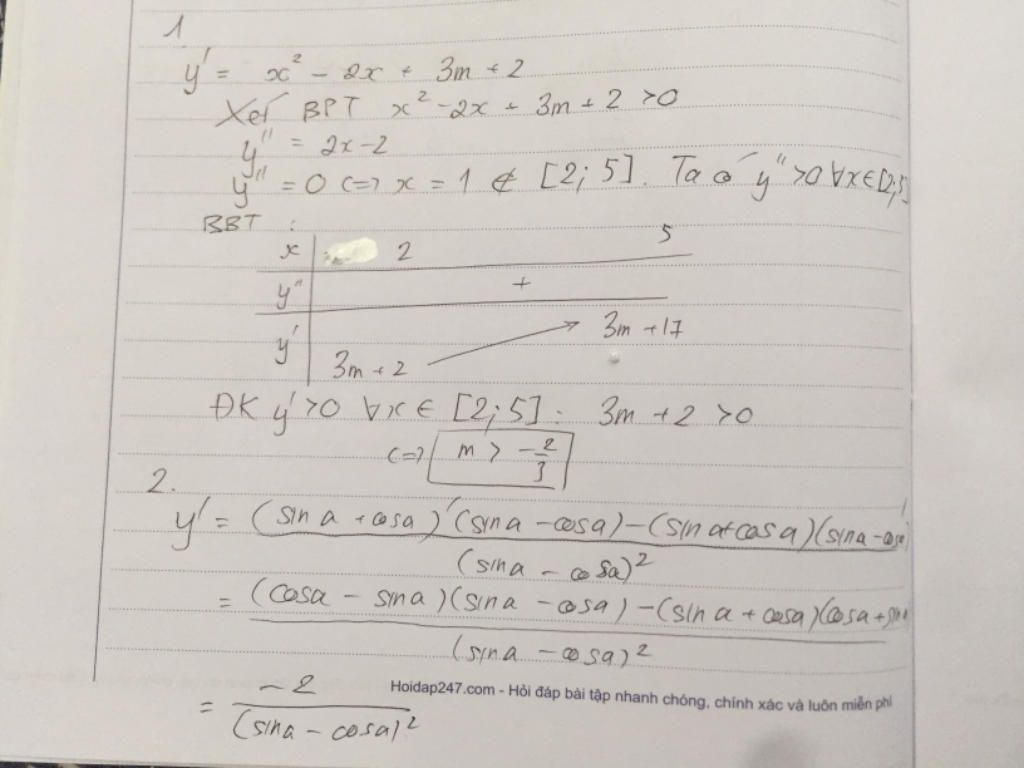 1
y' = x² - 2x + 3m + 2
Xét BPT x² - 2x + 3m + 2 > 0
y'' = 2x - 2
y'' = 0 (=) x = 1 ∉ [2; 5]. Ta có y'' > 0 ∀x ∈ [2; 5]
BBT :
x 2 5
y'' +
y' 3m + 2 3m + 17
ĐK y' > 0 ∀x ∈ [2; 5] : 3m + 2 > 0
(=) m > -2/3
2.
y' = (sin a + cos a)'(sin a - cos a) - (sin a + cos a)(sin a - cos a)' / (sin a - cos a)²
= (cos a - sin a)(sin a - cos a) - (sin a + cos a)(cos a + sin / (sin a - cos a)²
= -2 / (sin a - cos a)²
Hoidap247.com - Hỏi đáp bài tập nhanh chóng, chính xác và luôn miễn phí